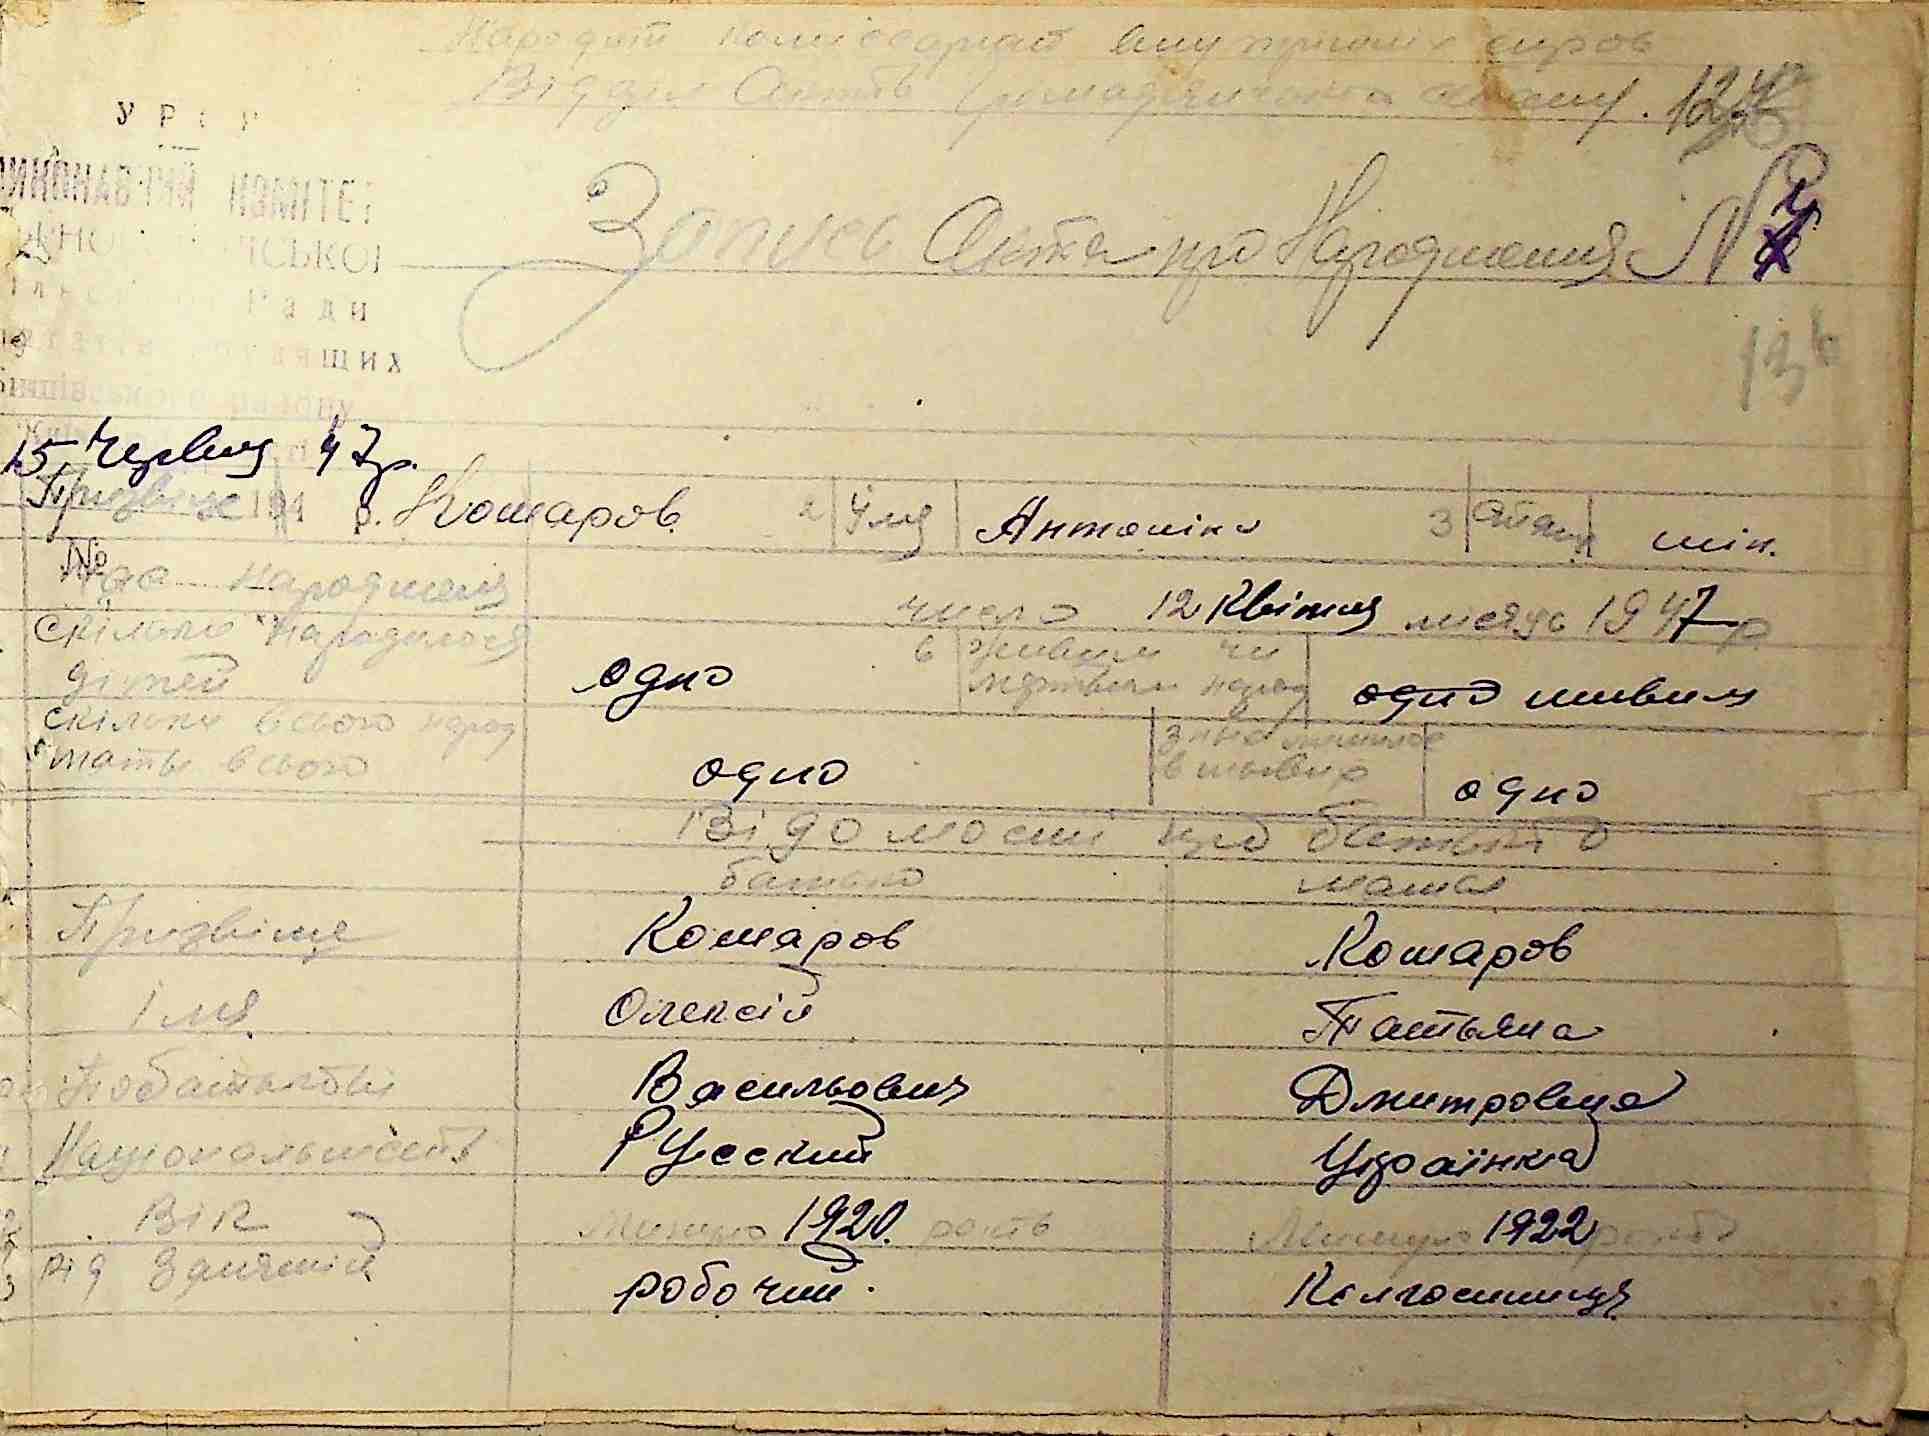 Народний комісаріат внутрішніх справ
Відділ Актів Громадянського стану. 124
УРСР
ВИКОНАВЧИЙ КОМІТЕТ
Запись Акта про Народження №
Ради
трудящих
району
136
15 Червня 47р.
Призвіще 194 р. Комаров 2 Імя Антоніна 3 Стать жін.
№
Час народженя число 12 Квітня місяць 1947 р.
Скільки народилося дітей одно 6 живим чи мертвым народ одно живим
скільки всього народ мать всього одно з них лишилос в живих одно
Відомості про батьків
батько мати
Призвіще Комаров Комаров
Імя Олексій Татьяна
Побатькові Васильович Дмитровна
Національність Русский Українка
Вік Минуло 1920. років Минуло 1922 років
рід занятій робочий. Колгоспниця